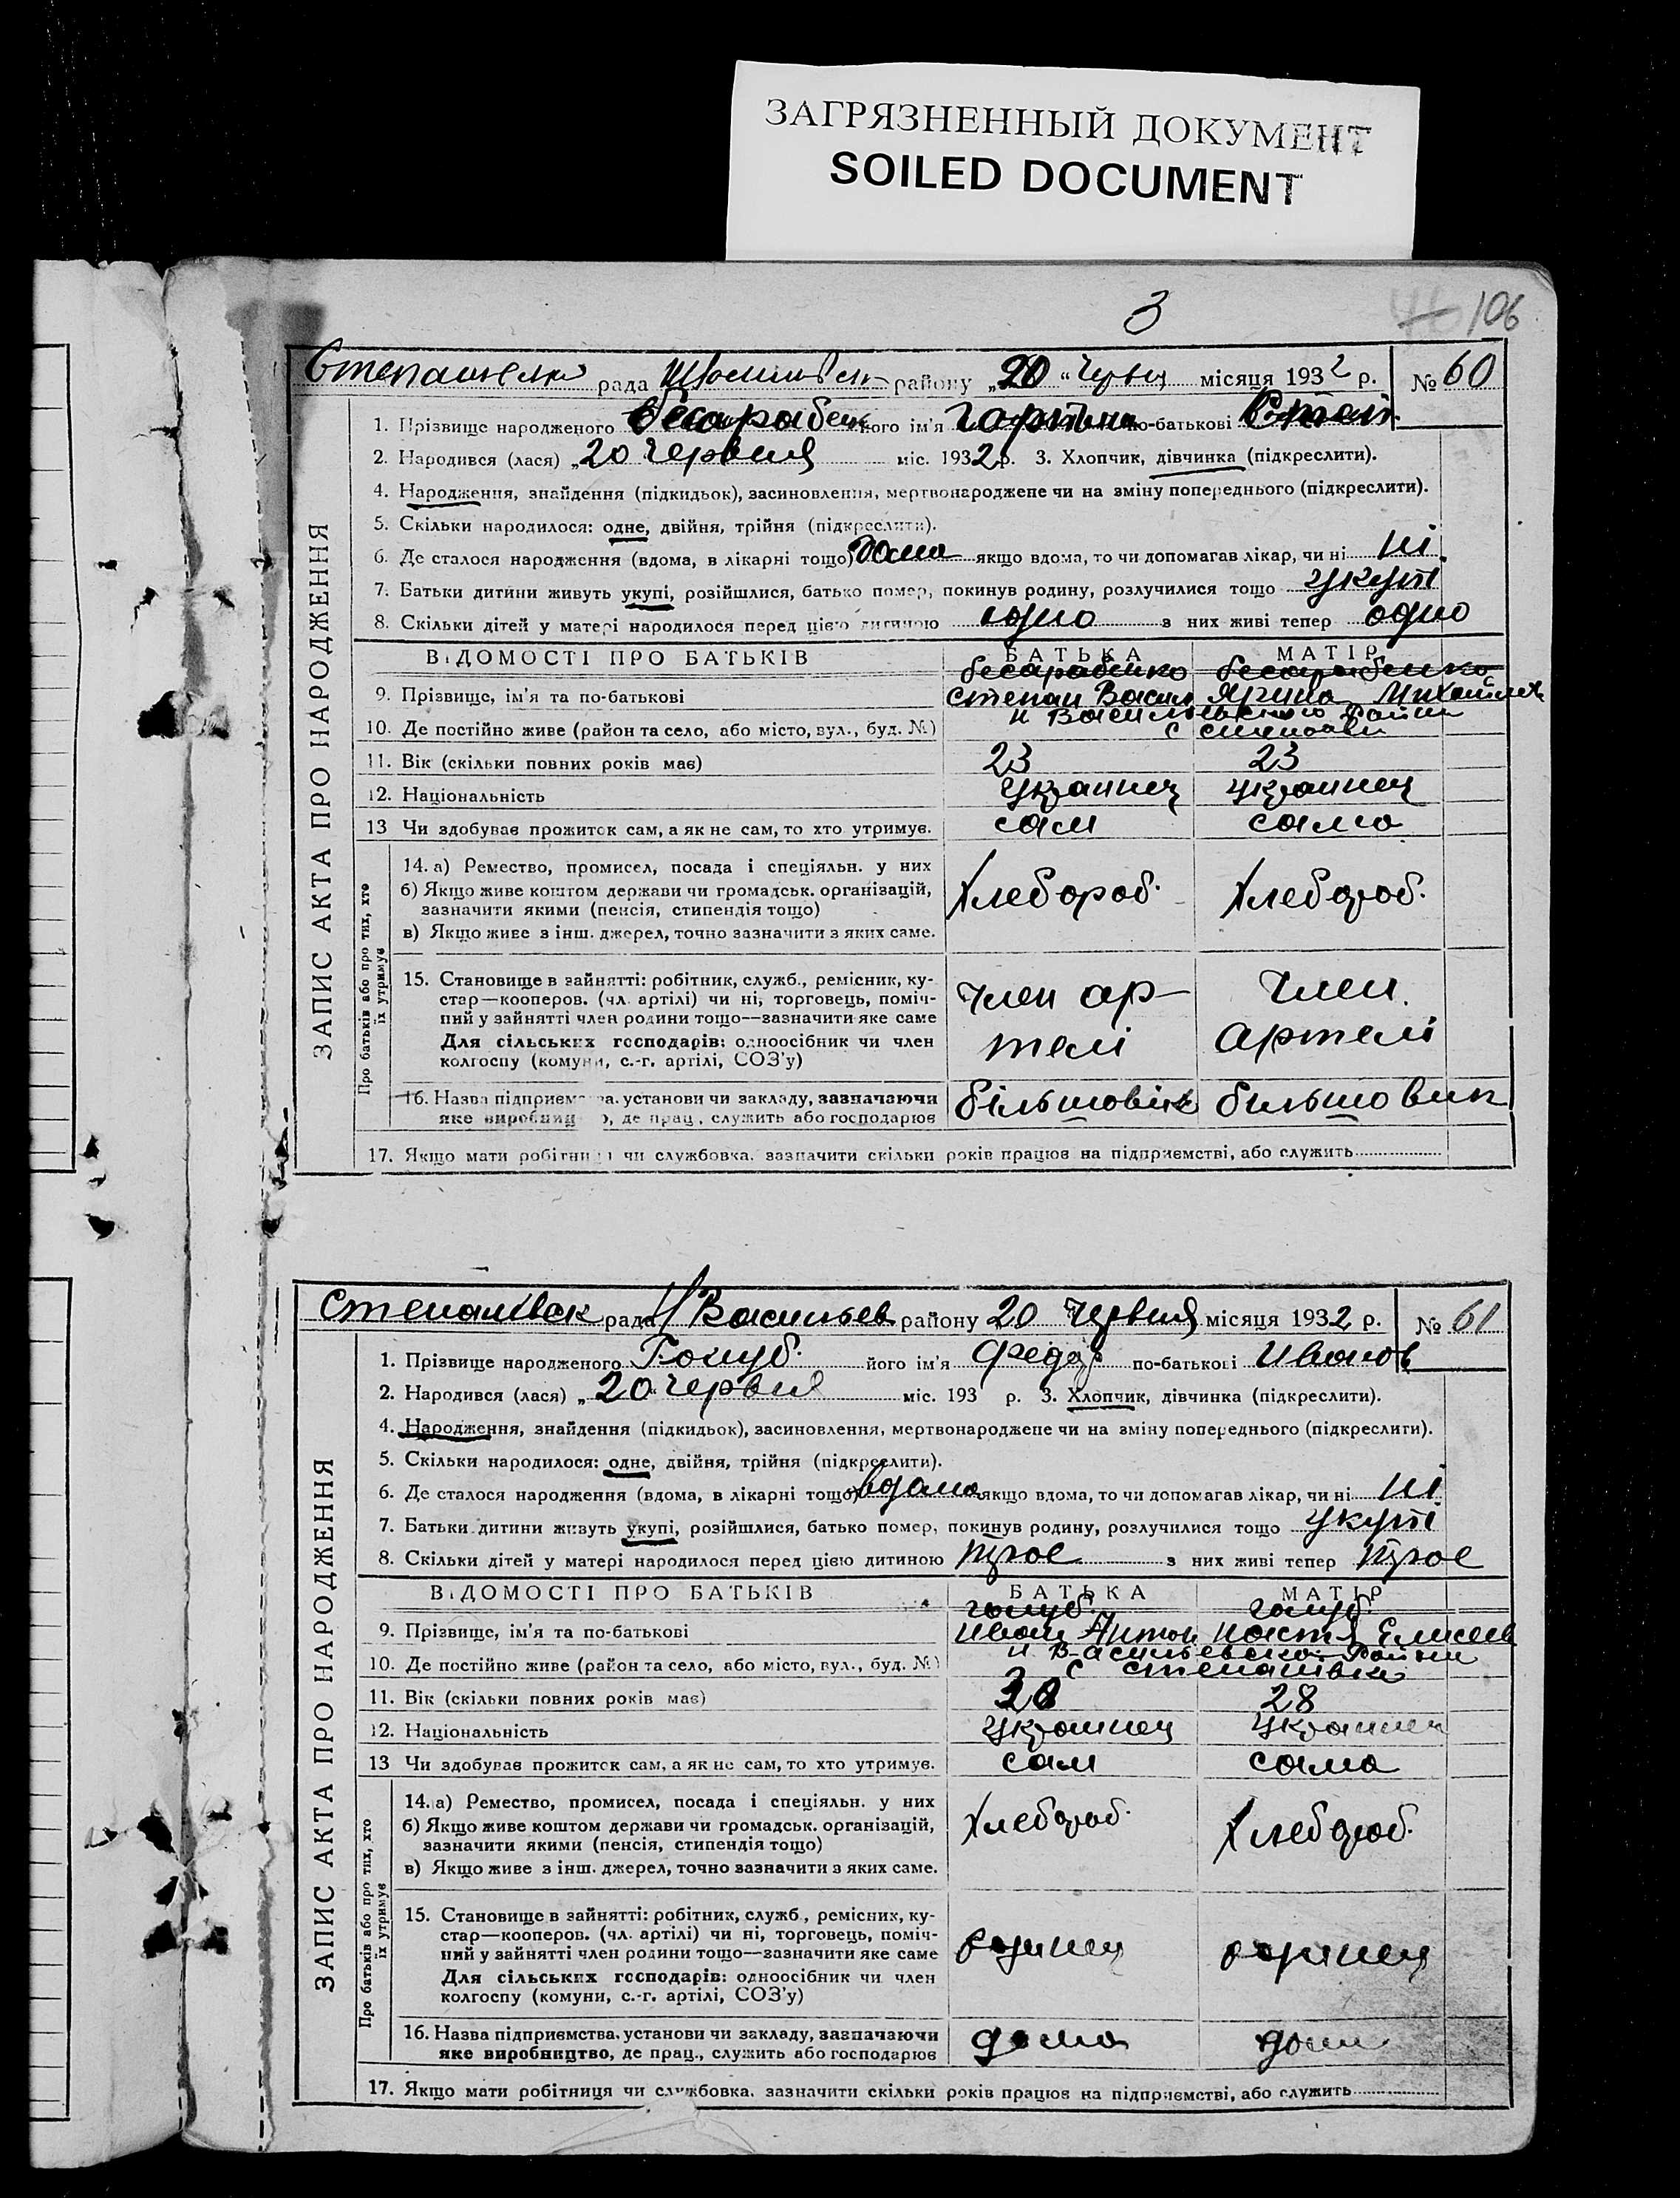 ЗАГРЯЗНЕННЫЙ ДОКУМЕНТ
SOILED DOCUMENT
3
106
рада району „20“ місяця 1932 р. № 60
ЗАПИС АКТА ПРО НАРОДЖЕННЯ
1. Прізвище народженого його ім'я по-батькові
2. Народився (лася) „20 червня міс. 1932 р. 3. Хлопчик, дівчинка (підкреслити).
4. Народження, знайдення (підкидьок), засиновлення, мертвонароджене чи на зміну попереднього (підкреслити).
5. Скільки народилося: одне, двійня, трійня (підкреслити).
6. Де сталося народження (вдома, в лікарні тощо) якщо вдома, то чи допомагав лікар, чи ні ні
7. Батьки дитини живуть укупі, розійшлися, батько помер, покинув родину, розлучилися тощо укупі
8. Скільки дітей у матері народилося перед цією дитиною одно з них живі тепер одно
ВІДОМОСТІ ПРО БАТЬКІВ БАТЬКА МАТІР
бесарабенко бесарабенко
9. Прізвище, ім'я та по-батькові Степан Васил Ярина
10. Де постійно живе (район та село, або місто, вул., буд. №)
11. Вік (скільки повних років має) 23 23
12. Національність Украинец украинец
13 Чи здобував прожиток сам, а як не сам, то хто утримує. сам сама
Про батьків або про тих, хто їх утримує
14. а) Ремество, промисел, посада і спеціяльн. у них
б) Якщо живе коштом держави чи громадськ. організацій,
зазначити якими (пенсія, стипендія тощо) Хлебороб. Хлебороб.
в) Якщо живе з інш. джерел, точно зазначити з яких саме.
15. Становище в зайнятті: робітник, служб., ремісник, ку-
стар—кооперов. (чл. артілі) чи ні, торговець, поміч- член ар- член
ний у зайнятті член родини тощо—зазначити яке саме
Для сільських господарів: одноосібник чи член телі артелі
колгоспу (комуни, с.-г. артілі, СОЗ'у)
16. Назва підприємства, установи чи закладу, зазначаючи більшовік большовик
яке виробництво, де прац., служить або господарює
17. Якщо мати робітниця чи службовка, зазначити скільки років працює на підприємстві, або служить
Степанівск рада Н Васильев району 20 червня місяця 1932 р. № 61
ЗАПИС АКТА ПРО НАРОДЖЕННЯ
1. Прізвище народженого Голуб його ім'я Федор по-батькові Иванов
2. Народився (лася) „20“ червня міс. 193 р. 3. Хлопчик, дівчинка (підкреслити).
4. Народження, знайдення (підкидьок), засиновлення, мертвонароджене чи на зміну попереднього (підкреслити).
5. Скільки народилося: одне, двійня, трійня (підкреслити).
6. Де сталося народження (вдома, в лікарні тощо) вдома якщо вдома, то чи допомагав лікар, чи ні ні
7. Батьки дитини живуть укупі, розійшлися, батько помер, покинув родину, розлучилися тощо укупі
8. Скільки дітей у матері народилося перед цією дитиною трое з них живі тепер трое
ВІДОМОСТІ ПРО БАТЬКІВ БАТЬКА МАТІР
голуб. голуб.
9. Прізвище, ім'я та по-батькові Иван Антон Настя Елисеев
н Васильевско Район
10. Де постійно живе (район та село, або місто, вул., буд. №) с степанівка
11. Вік (скільки повних років має) 28
12. Національність Украинец Украинец
13 Чи здобував прожиток сам, а як не сам, то хто утримує. сам сама
Про батьків або про тих, хто їх утримує
14. а) Ремество, промисел, посада і спеціяльн. у них
б) Якщо живе коштом держави чи громадськ. організацій, Хлебороб. Хлебороб.
зазначити якими (пенсія, стипендія тощо)
в) Якщо живе з інш. джерел, точно зазначити з яких саме.
15. Становище в зайнятті: робітник, служб., ремісник, ку-
стар—кооперов. (чл. артілі) чи ні, торговець, поміч-
ний у зайнятті член родини тощо—зазначити яке саме
Для сільських господарів: одноосібник чи член
колгоспу (комуни, с.-г. артілі, СОЗ'у)
16. Назва підприємства, установи чи закладу, зазначаючи дома дома
яке виробництво, де прац., служить або господарює
17. Якщо мати робітниця чи службовка, зазначити скільки років працює на підприємстві, або служить